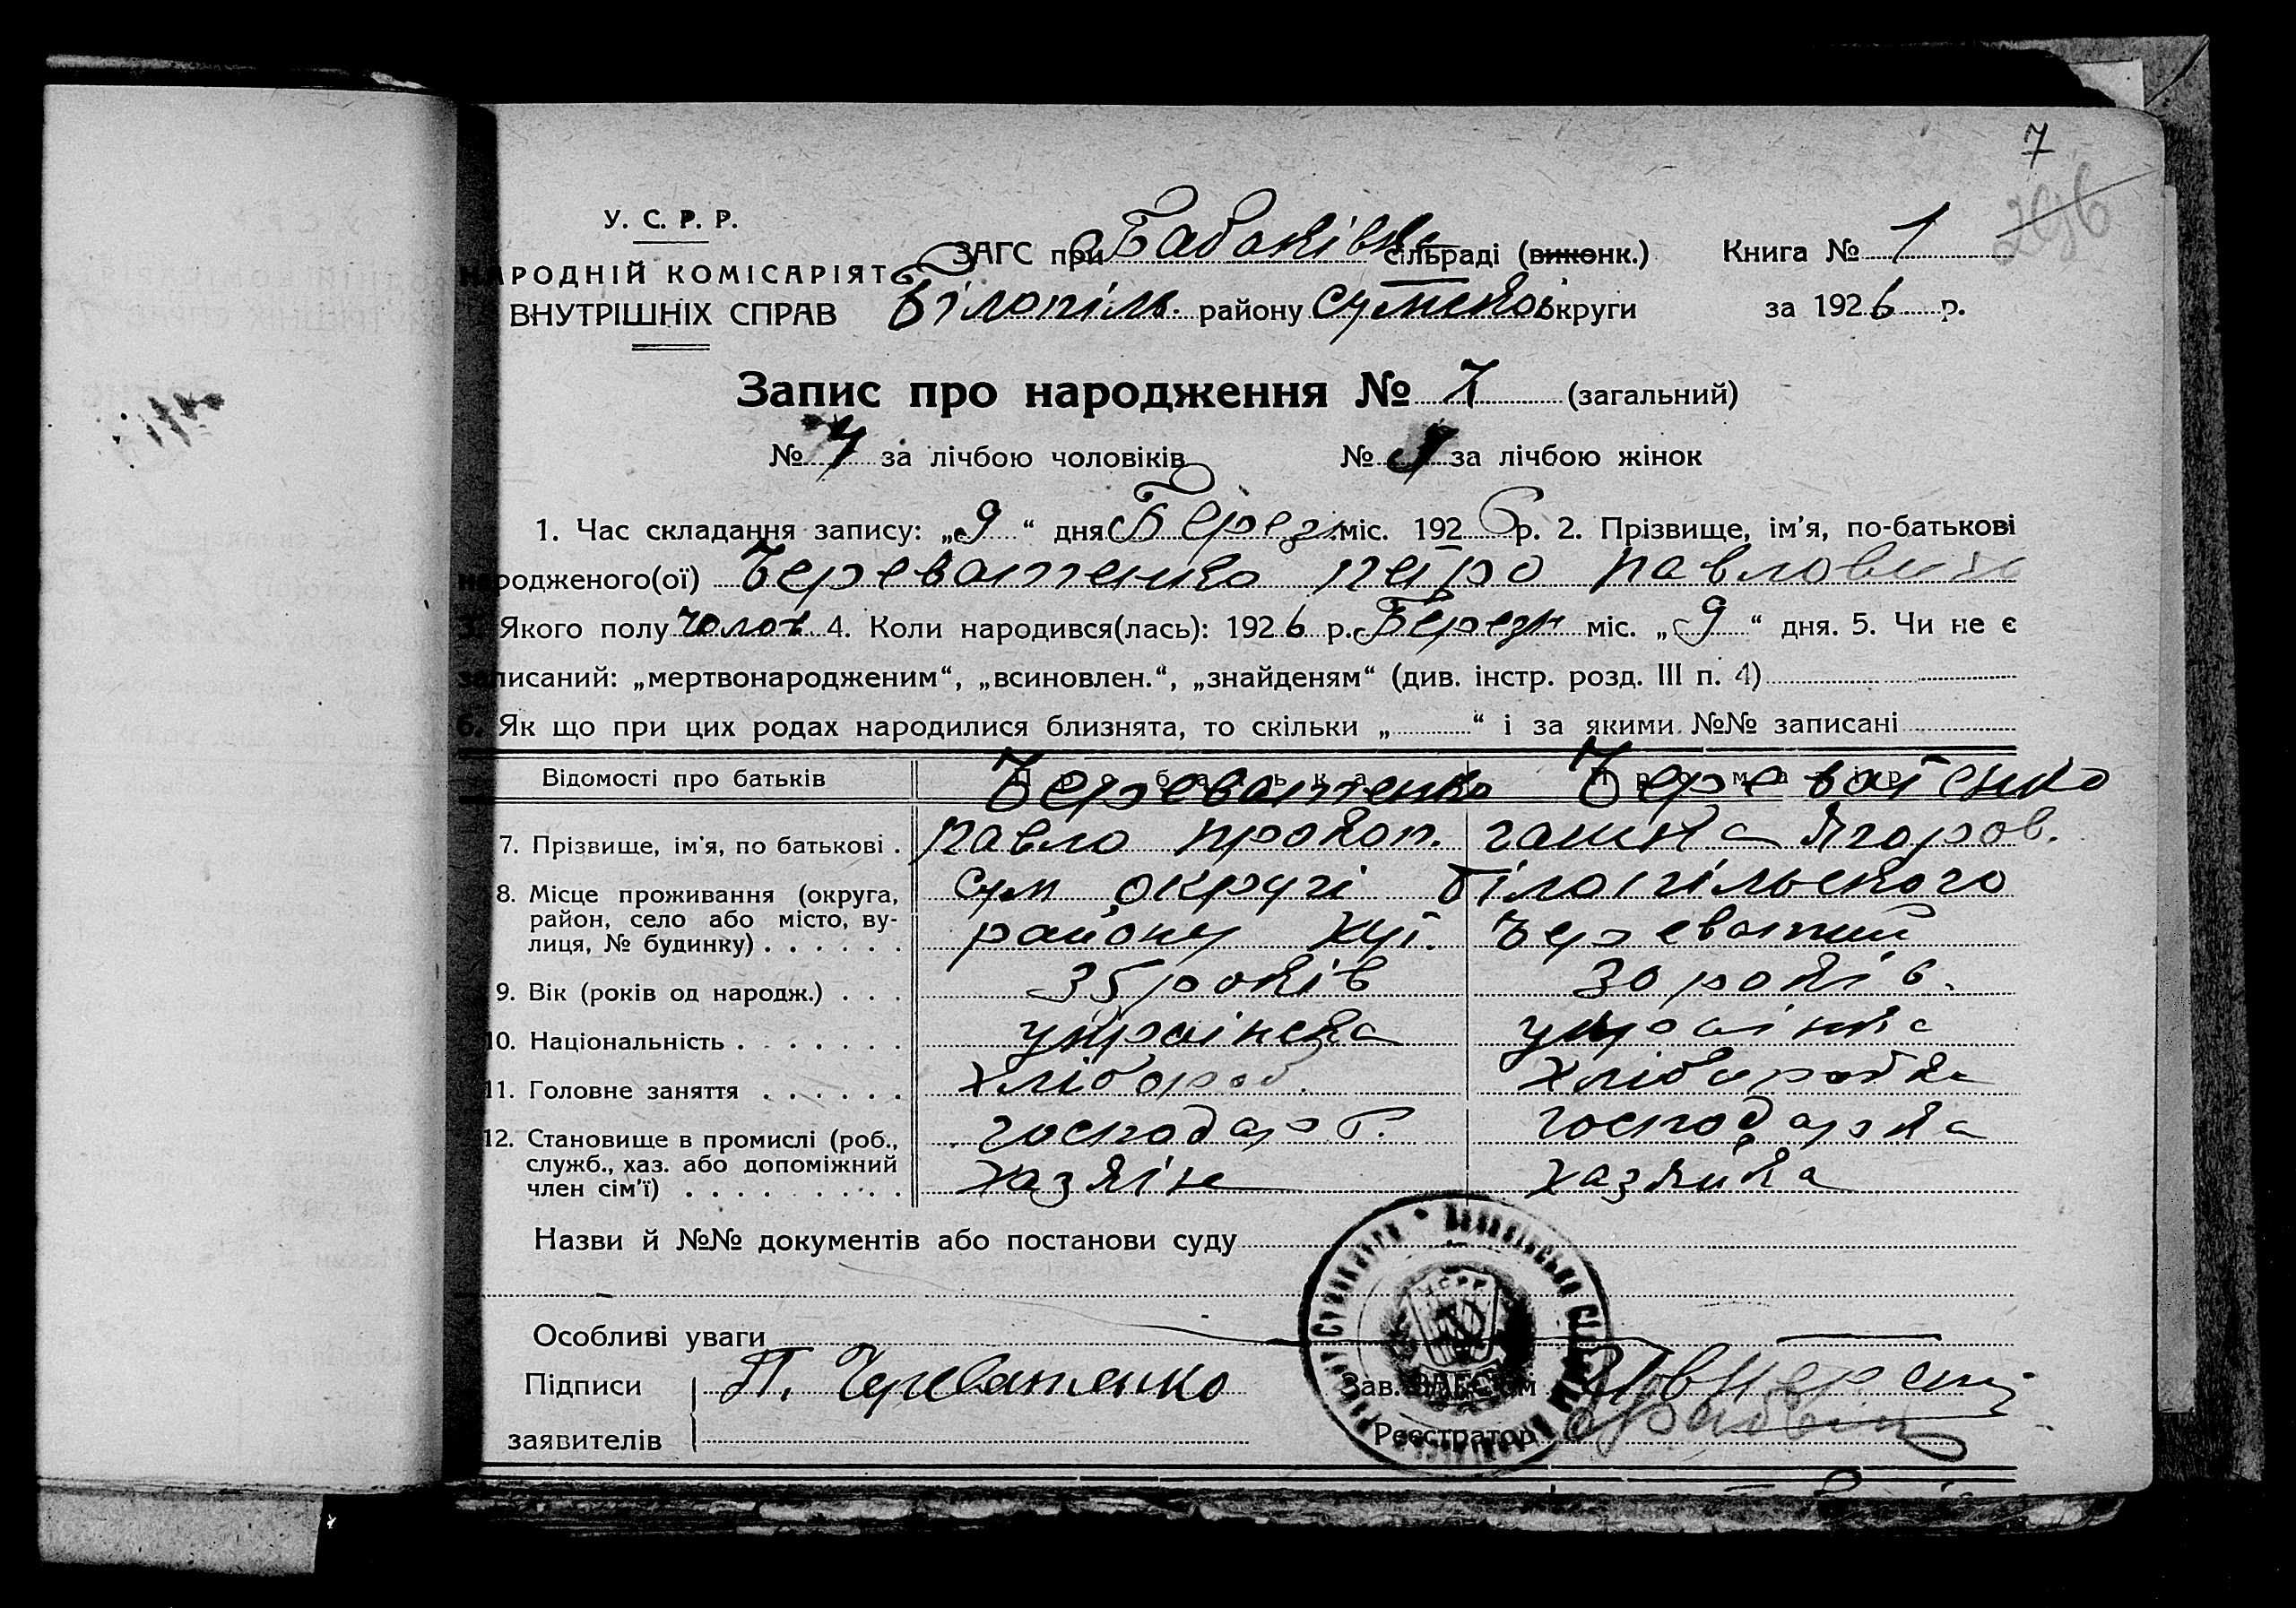 7
296
У. С. Р. Р.
НАРОДНІЙ КОМІСАРІЯТ
ВНУТРІШНІХ СПРАВ
ЗАГС при Бабаківск сільраді (виконк.)
Білопіль. району Сумской округи
Книга № 1
за 1926 р.
Запис про народження № 7 (загальний)
№ 4 за лічбою чоловіків № за лічбою жінок
1. Час складання запису: „9“ дня Березн. міс. 1926 р. 2. Прізвище, ім'я, по-батькові
народженого(ої) Череватенко Петро Павлович
3. Якого полу чолов 4. Коли народився(лась): 1926 р. Березн міс. „9“ дня. 5. Чи не є
записаний: „мертвонародженим“, „всиновлен.“, „знайденям“ (див. інстр. розд. III п. 4)
6. Як що при цих родах народилися близнята, то скільки „ “ і за якими №№ записані
Відомості про батьків Про батька Про матір
Череватенко Череватенко
7. Прізвище, ім'я, по батькові . Павло Прокоп. Ягоров.
8. Місце проживання (округа, Сум округі Білопільского
район, село або місто, ву-
лиця, № будинку) . . . . . . району хут. Череватий
9. Вік (років од народж.) . . . 35 років 30 років.
10. Національність . . . . . . . українка
11. Головне заняття . . . . . . хлібороб. хліборобка
12. Становище в промислі (роб., господар г. господарка
служб., хаз. або допоміжний
член сім'ї) . . . . . . . . . хазяін хазяйка
Назви й №№ документів або постанови суду
Особливі уваги
Підписи П. Череватенко Зав. ЗАГС'ом
заявителів Реєстратор